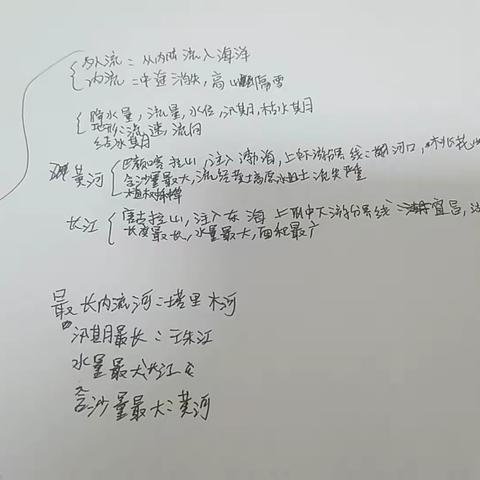 外流：从内陆流入海洋
内流：中途消失，高山阻隔
降水量，流量，水位，汛期，枯水期
地形：流速，流向
结冰期
黄河 巴颜喀拉山，注入渤海，上中游分界线：河口，桃花
含沙量最大，流经黄土高原水土流失严重
植被
长江 唐古拉山，注入东海 上中下游分界线：宜昌，
长度最长，水量最大，面积最广
最长内流河：塔里木河
汛期最长：珠江
水量最大长江
含沙量最大：黄河